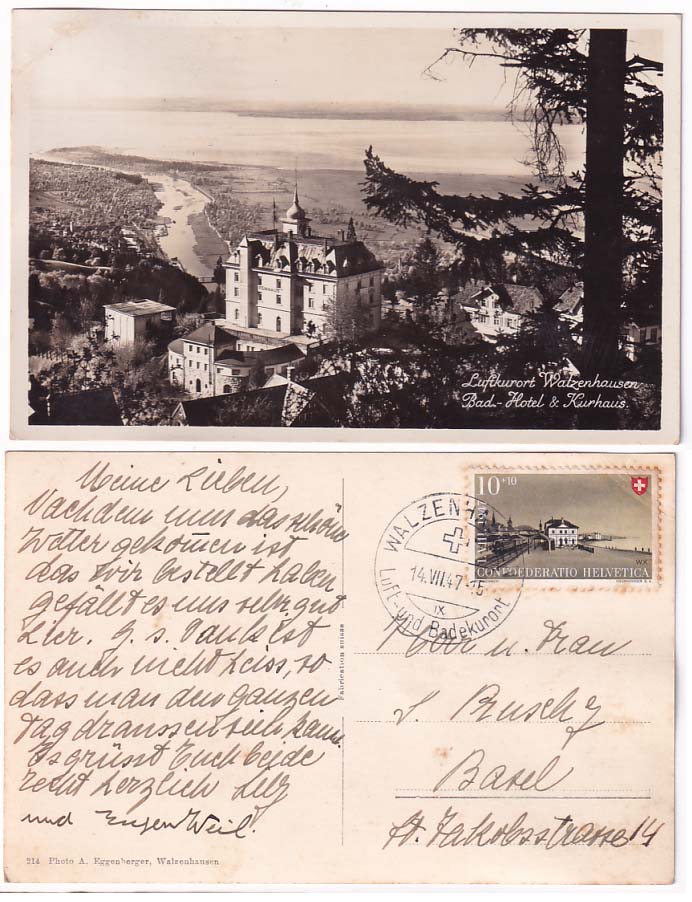 Luftkurort Walzenhausen
Bad-Hotel & Kurhaus.
Meine Lieben,
Nachdem nun das schöne
Wetter gekommen ist
das wir bestellt haben
gefällt es uns sehr gut
hier. G. s. Dank ist
es auch nicht heiss, so
dass man den ganzen
Tag draussen sein kann.
Es grüsst Euch beide
recht herzlich
und Eugen Weil.
214 Photo A. Eggenberger, Walzenhausen
Fabrication suisse
WALZENHAUSEN
14.VII.47
IX
Luft- und Badekurort
10+10
CONFOEDERATIO HELVETICA
Herr u. Frau
Basel
St. Jakobsstrasse 14